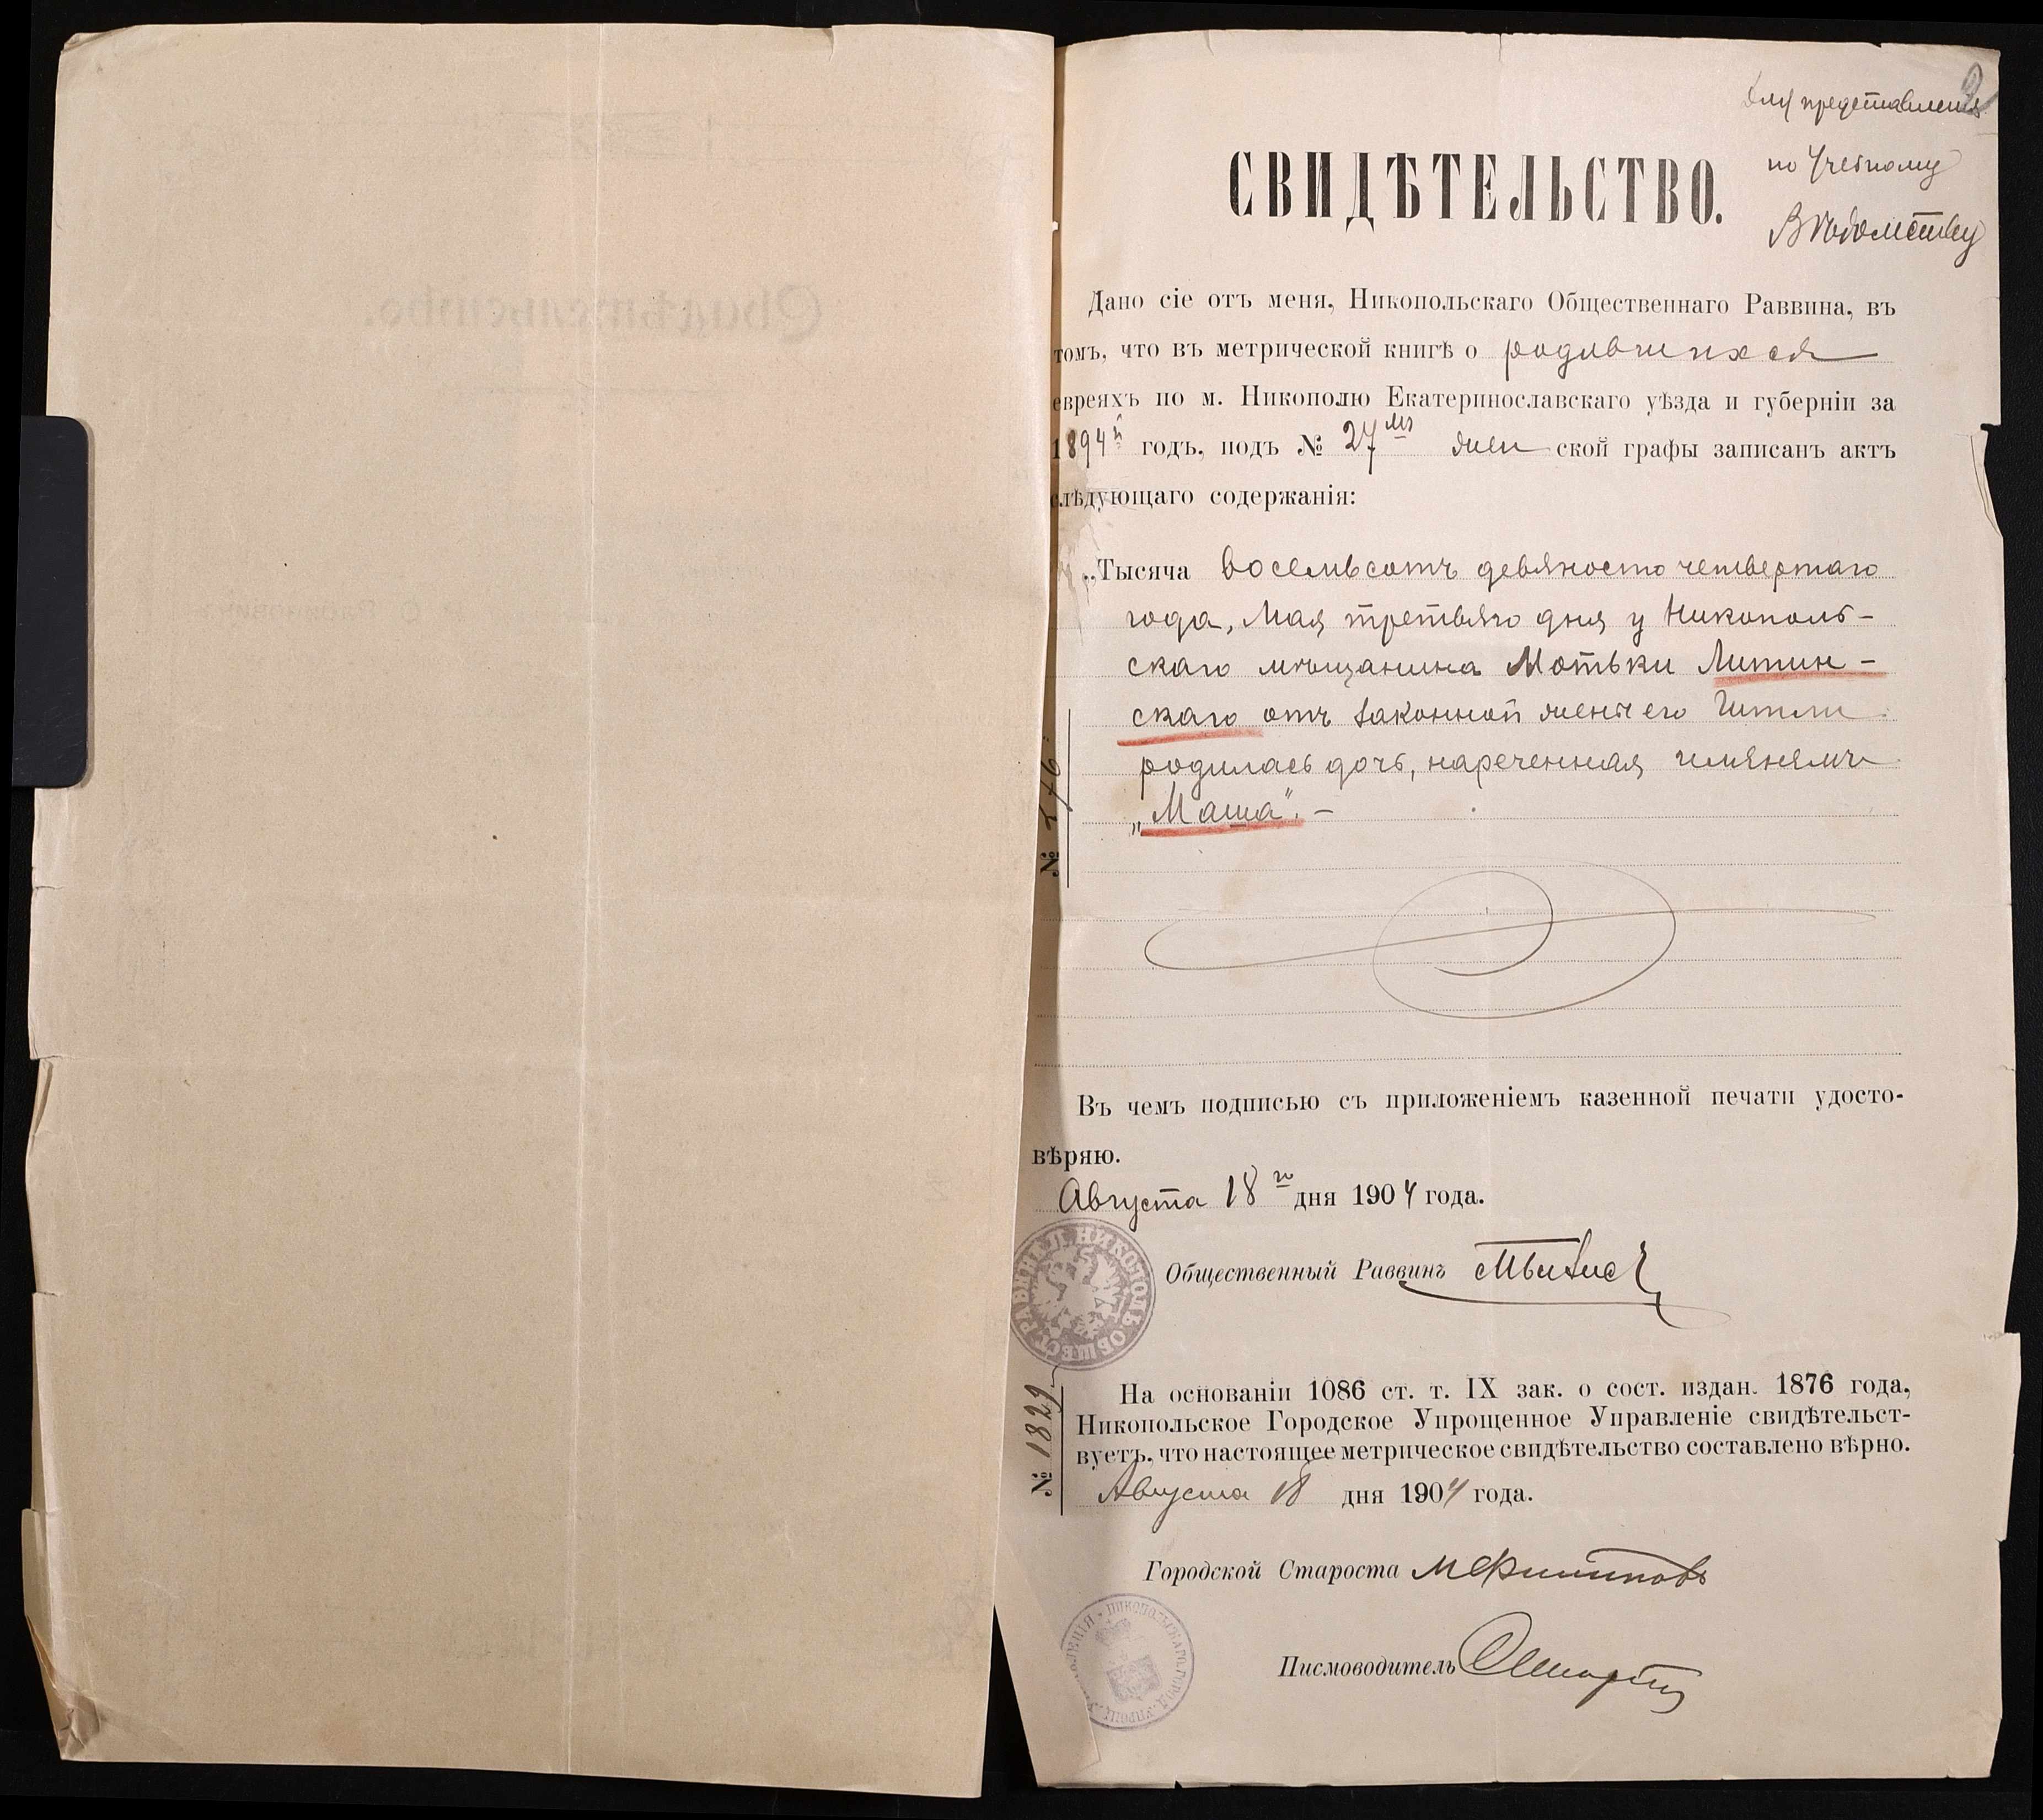 2
Для представленія
по Учебному
Вѣдомству
СВИДѢТЕЛЬСТВО.
Дано сіе отъ меня, Никопольскаго Общественнаго Раввина, въ
томъ, что въ метрической книгѣ о родившихся
евреяхъ по м. Никополю Екатеринославскаго уѣзда и губерніи за
1894й годъ, подъ № 27мъ жен ской графы записанъ актъ
слѣдующаго содержанія:
„Тысяча восемьсотъ девяносто четвертаго
года, Мая третьяго дня у Никополь-
скаго мѣщанина Мотьки Литин-
скаго отъ законной жены его Гитли
родилась дочь, нареченная имянемъ
„Маша“. –
№
Въ чемъ подписью съ приложеніемъ казенной печати удосто-
вѣряю.
Августа 18го дня 1904 года.
Общественный Раввинъ
НИКОПОЛЬ ОБЩЕСТ РАВВИНА
На основаніи 1086 ст. т. IX зак. о сост. издан. 1876 года,
Никопольское Городское Упрощенное Управленіе свидѣтельст-
вуетъ, что настоящее метрическое свидѣтельство составлено вѣрно.
№ 1829
Августа 18 дня 1904 года.
Городской Староста МФилиповъ
Писмоводитель
НИКОПОЛЬСКАГО ГОРОД. УПРОЩ. УПРАВЛЕНІЯ
Свидѣтельство.